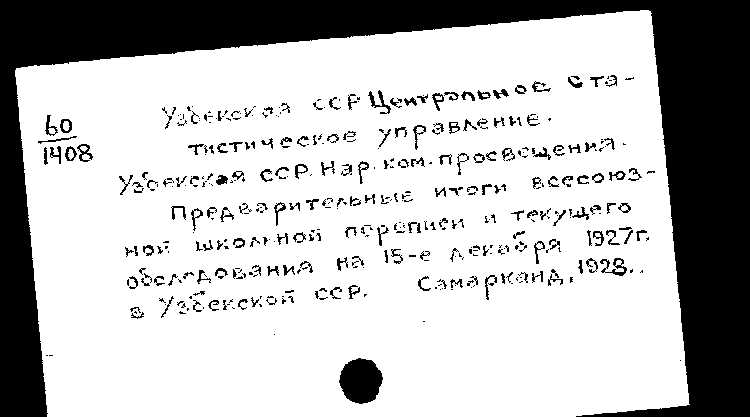 60
1408
Узбекская ССР Центральное Ста-
тистическое управление.
Узбекская ССР. Нар. ком. просвещения.
Предварительные итоги всесоюз-
ной школьной переписи и текущего
обследования на 15-е декабря 1927г.
в Узбекской ССР. Самарканд, 1928.